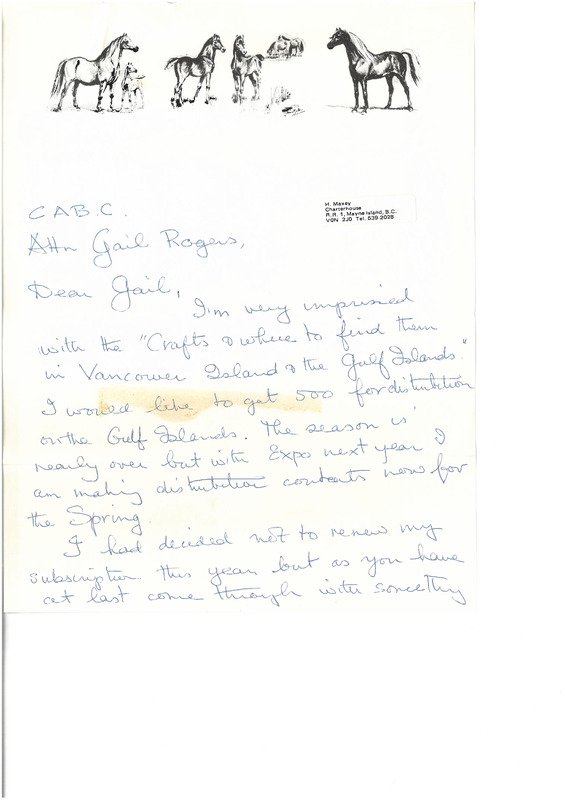 H. Maxey
Charterhouse
R.R. 1, Mayne Island, B.C.
V0N 2J0 Tel. 539 2028
C A B C.
Attn Gail Rogers,
Dear Gail,
I'm very impressed
with the "Crafts & where to find them
in Vancouver Island & the Gulf Islands."
I would like to get 500 for distribution
on the Gulf Islands. The season is
nearly over but with Expo next year I
am making distribution contacts now for
the Spring.
I had decided not to renew my
subscription this year but as you have
at last come through with something